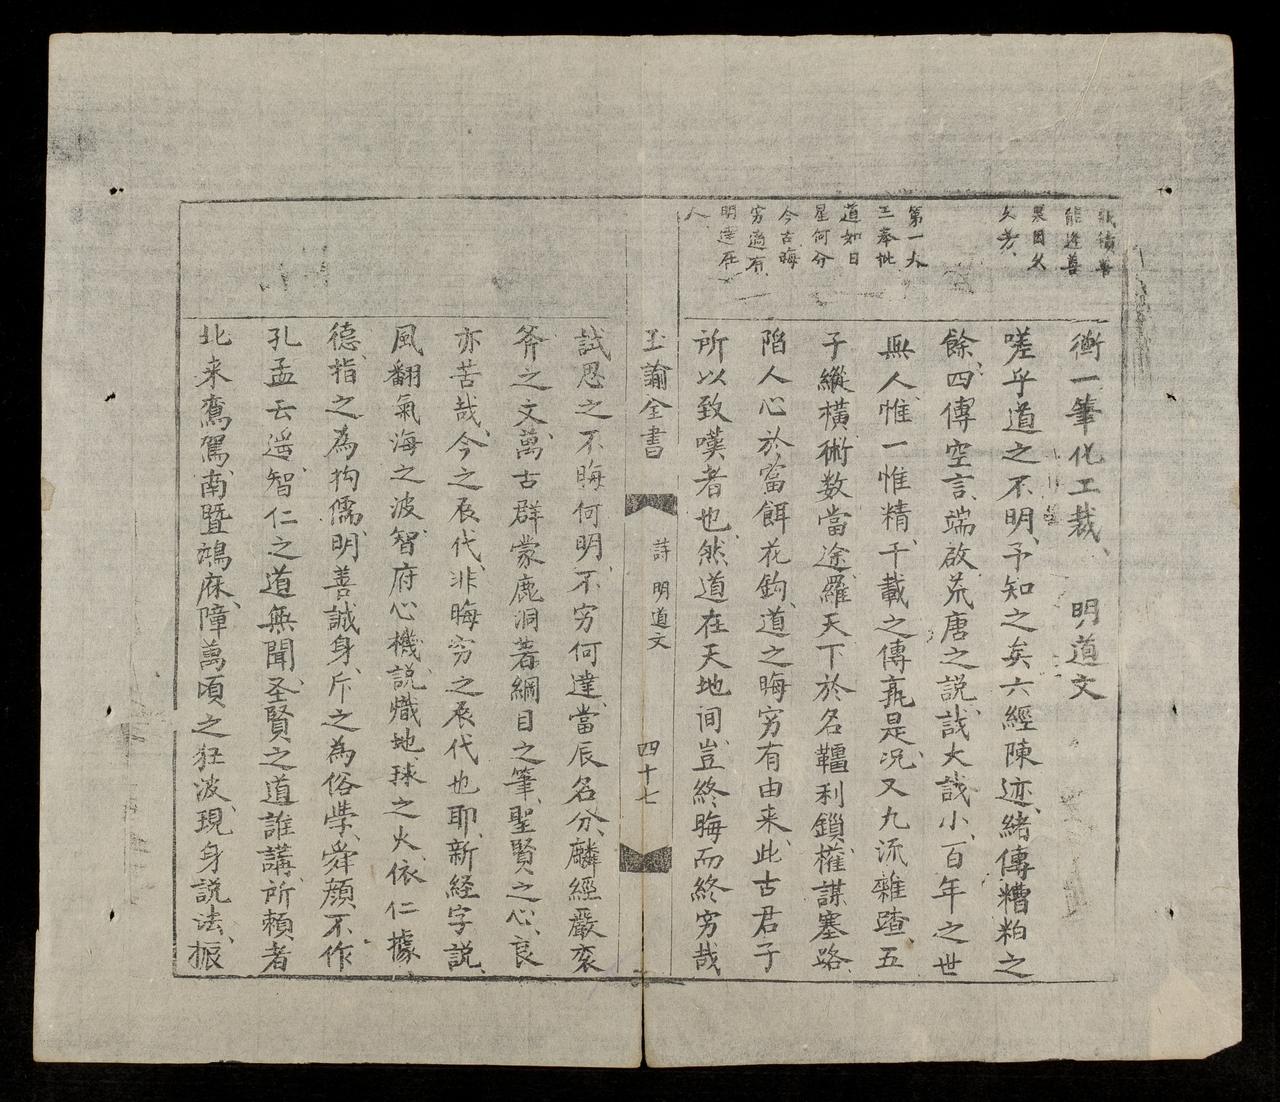 能逢善
果因父
父考
第一大
三奉批
道如日
星何分
今古晦
穷適有
明達在
人
衡一筆化工裁、　明道文
嗟乎道之不明、予知之矣六經陳迹、緒傳糟粕之
餘、四傳空言、端啟荒唐之説、誠大誠小、百年之世
無人惟一惟精、千載之傳孰是、况又九流雜踏、五
子縱橫、術数當途、羅天下於名韁利鎖、權謀塞路、
陷人心於當餌花鈎、道之晦穷有由来、此古君子
所以致嘆者也、然道在天地间、豈終晦而終穷哉
玉諭全書
詩　明道文
四十七
試思之不晦何明、不穷何達、當辰名分、麟經嚴衮
斧之文、萬古群蒙、鹿洞著綱目之筆、聖賢之心、良
亦苦哉、今之辰代、非晦穷之辰代也耶、新経字説、
風翻氣海之波、智府心機、説熾地球之火、依仁據
德、指之為拘儒、明善誠身、斥之為俗学、舜顔不作
孔孟云遥、智仁之道無聞、圣賢之道誰講、所頼者
北来鸞駕、南暨鴻庥、障萬頃之狂波、現身説法、振